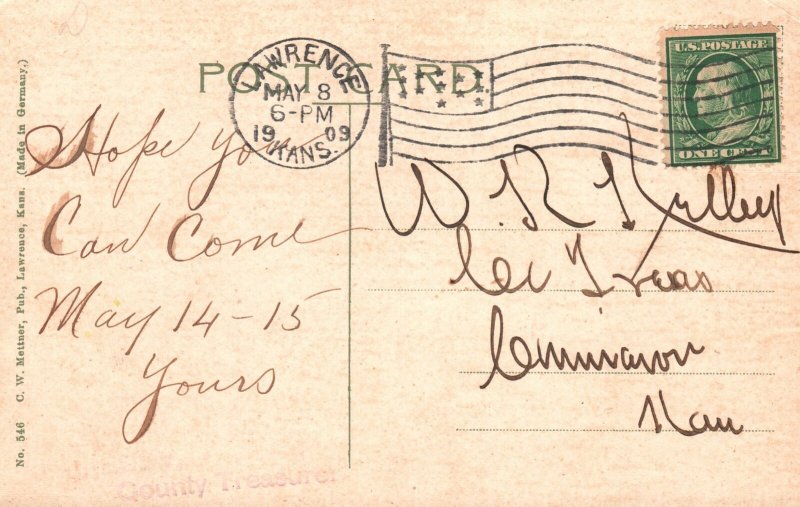 POST CARD.
LAWRENCE
MAY 8
6-PM
1909
KANS.
U.S. POSTAGE
ONE CENT
Hope you
Can Come
May 14-15
Yours
W. R. Kelley
Co Treas
Cimmaron
Kan
County Treasurer
No. 546 C. W. Mettner, Pub., Lawrence, Kans. (Made in Germany.)